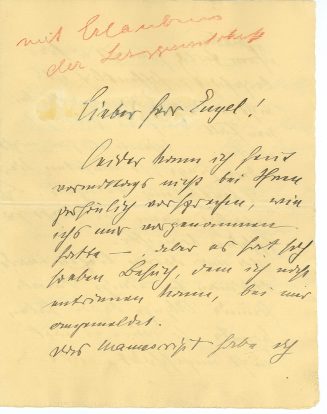 mit Erlaubnis
der
Lieber Herr Engel!
Leider kann ich heut
vormittags nicht bei Ihnen
persönlich vorsprechen, wie
ich's mir vorgenommen
hatte – aber es hat sich
soeben Besuch, dem ich nicht
entrinnen kann, bei mir
angemeldet.
Das Manuscript habe ich